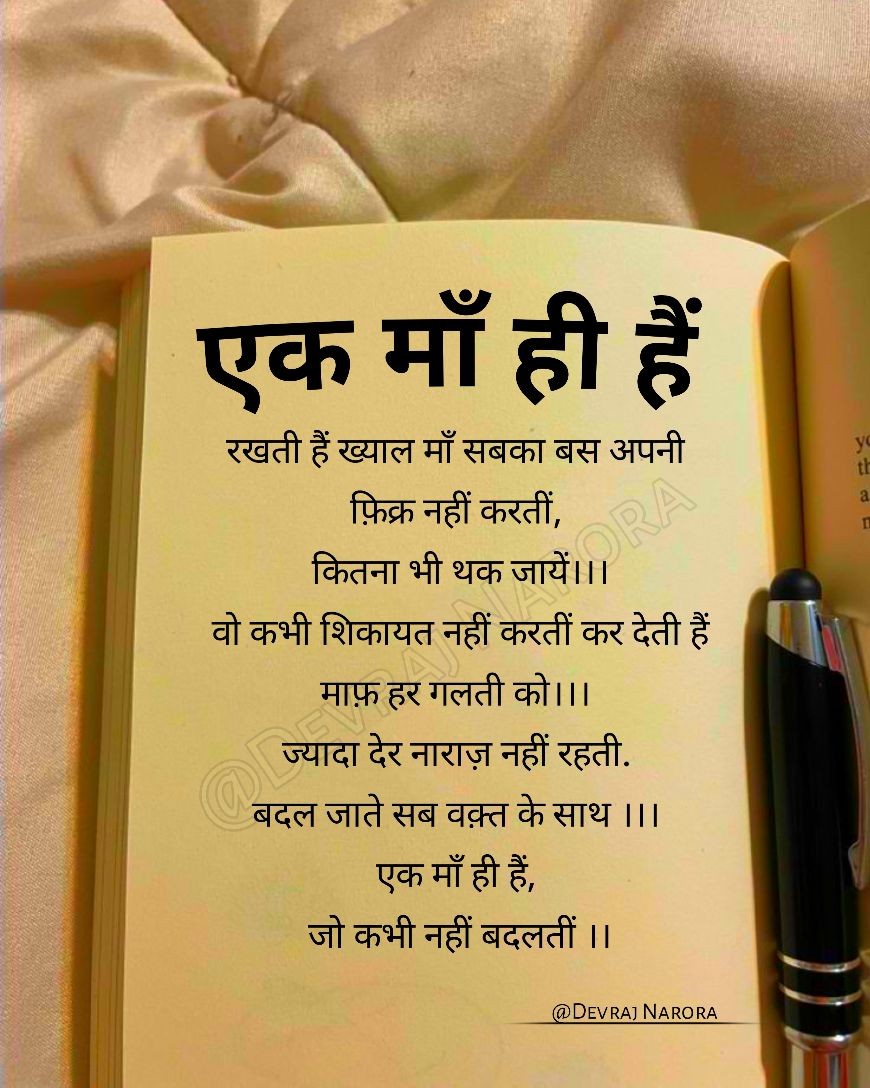 एक माँ ही हैं
रखती हैं ख्याल माँ सबका बस अपनी
फ़िक्र नहीं करतीं,
कितना भी थक जायें।।।
वो कभी शिकायत नहीं करतीं कर देती हैं
माफ़ हर गलती को।।।
ज्यादा देर नाराज़ नहीं रहती.
बदल जाते सब वक़्त के साथ ।।।
एक माँ ही हैं,
जो कभी नहीं बदलतीं ।।
@DEVRAJ NARORA
@DEVRAJ NARORA